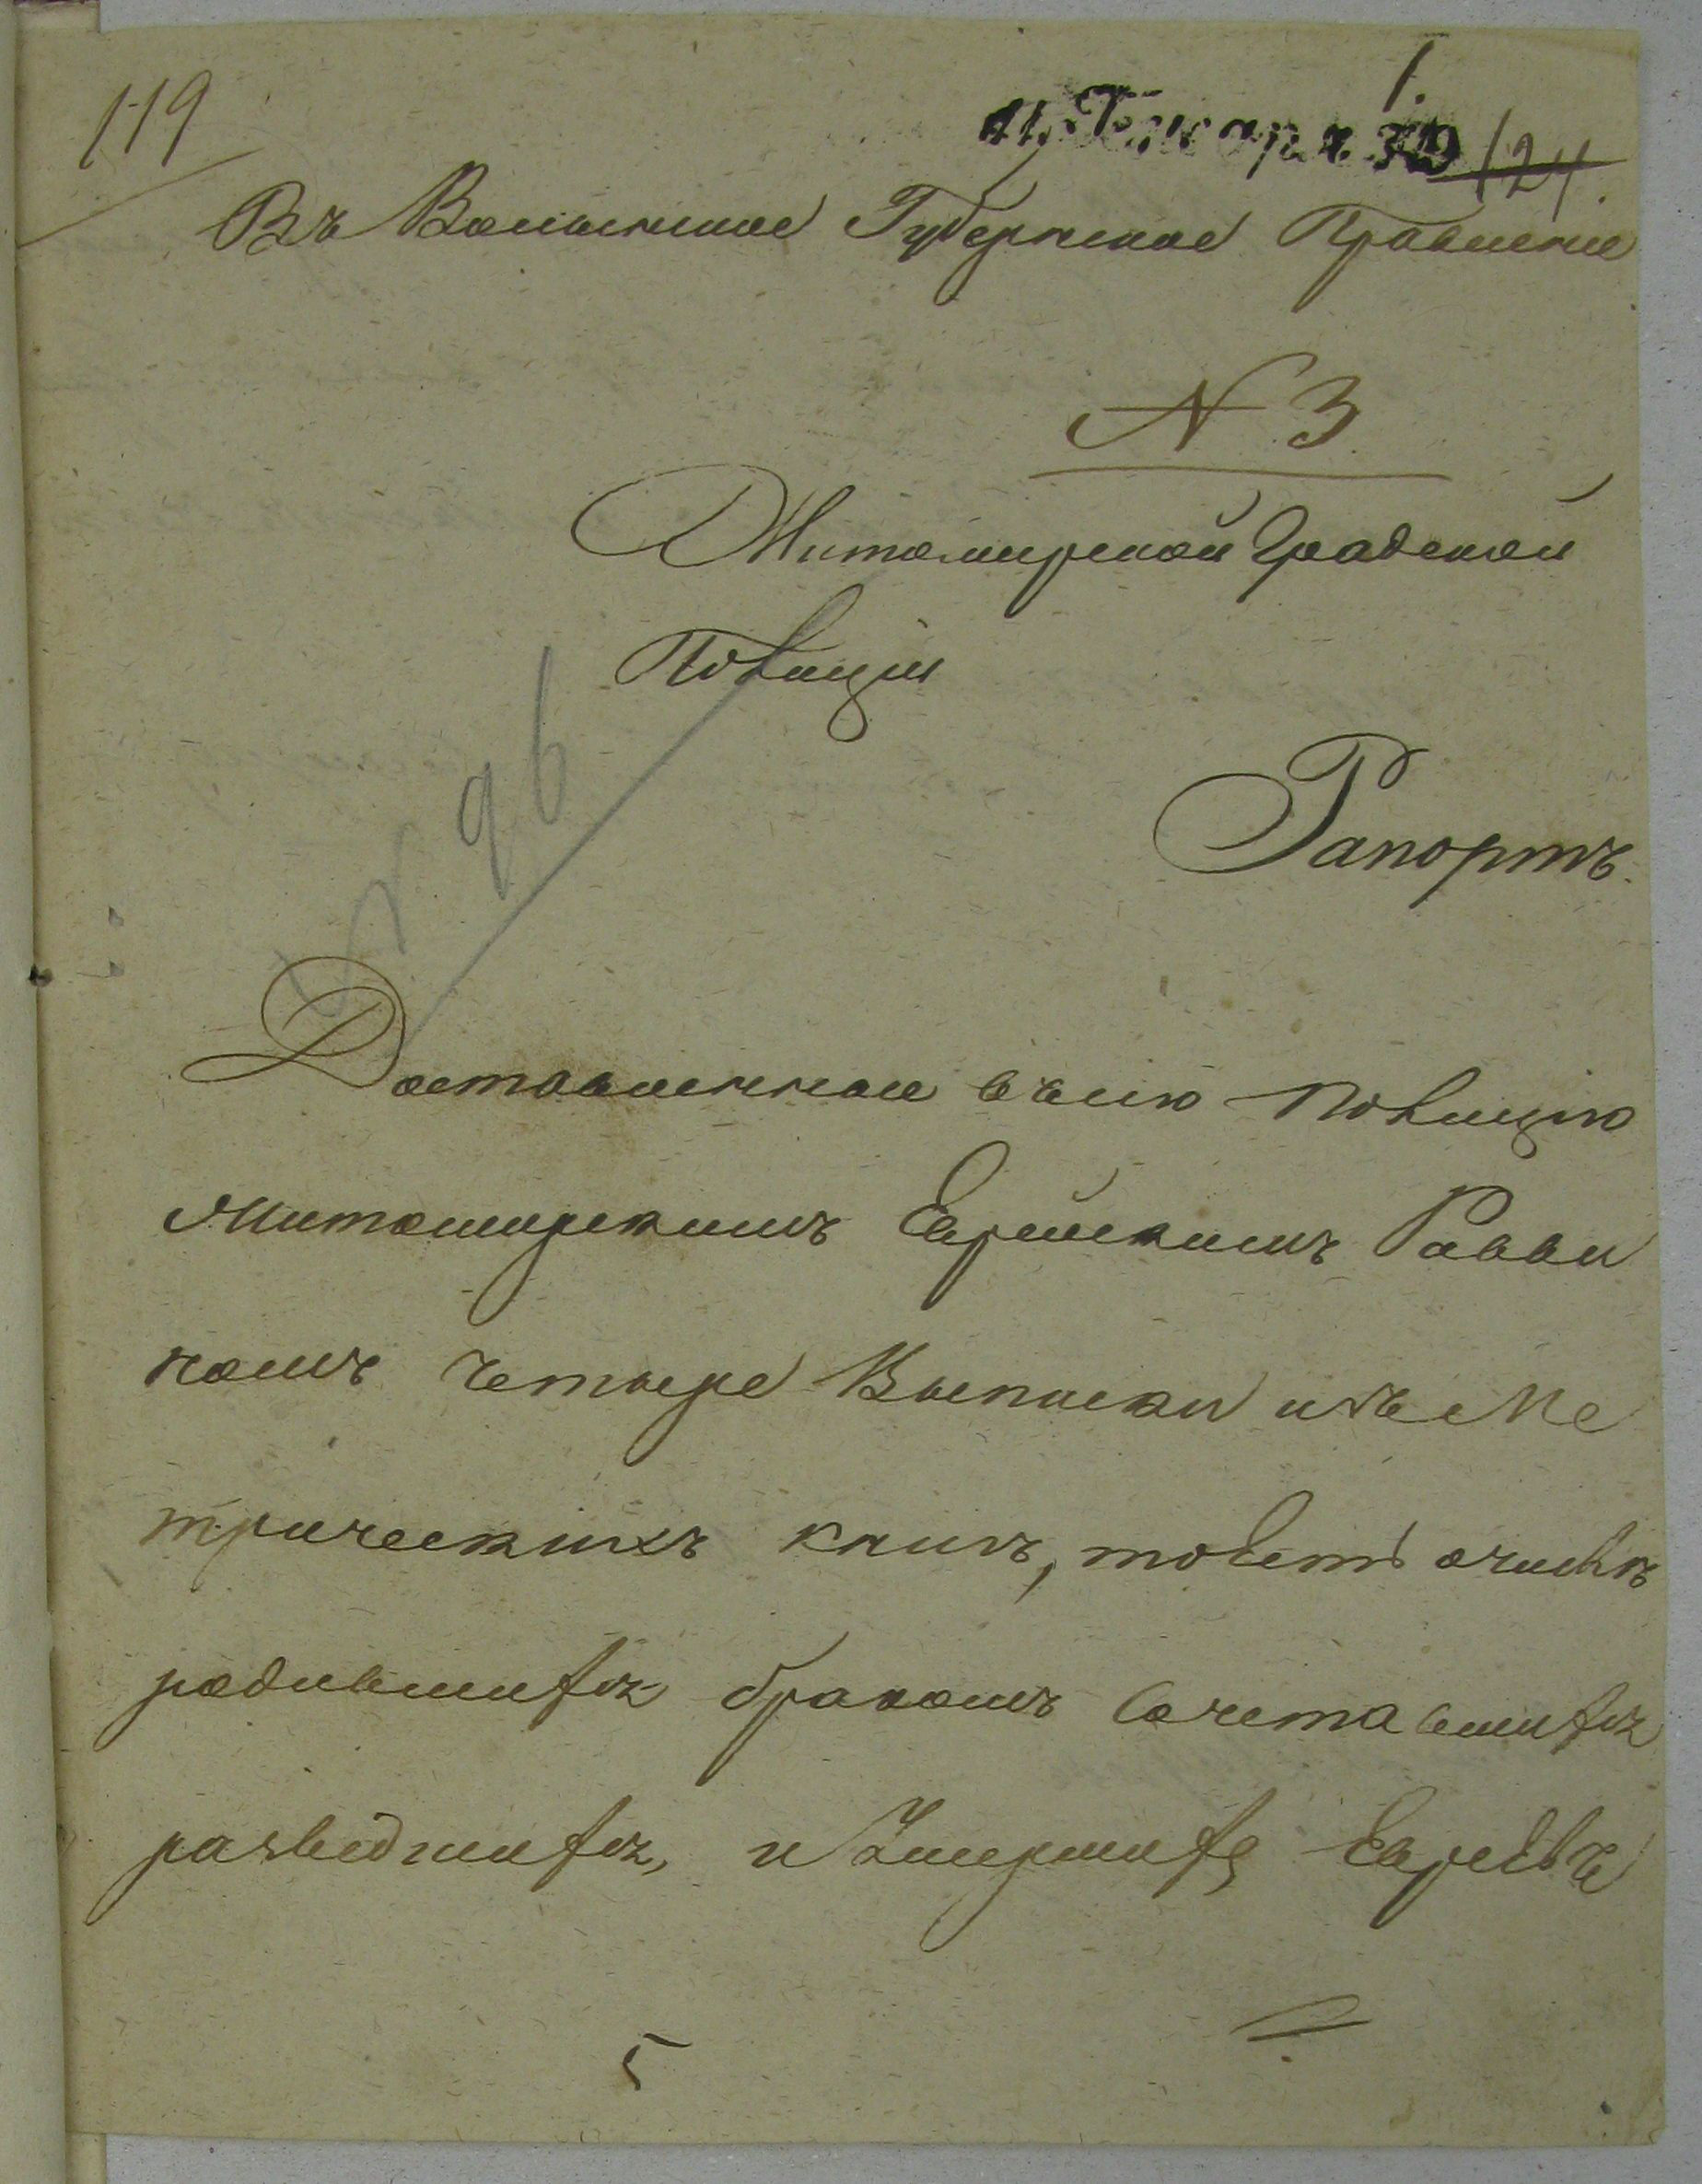 119
1.
11 Генваря
124
Въ Волынское Губернское Правленіе
N 3
Житомирской Градской
Полиціи
Рапортъ.
96
Доставленные въ сію Полицію
Житомирскимъ Еврейскимъ Рави
номъ четыре Выписки изъ Ме
трическихъ книгъ, тоесть очислѣ
родившихся бракомъ Сочетавшихся
разведшихся, и Умершихъ Евреевъ
5